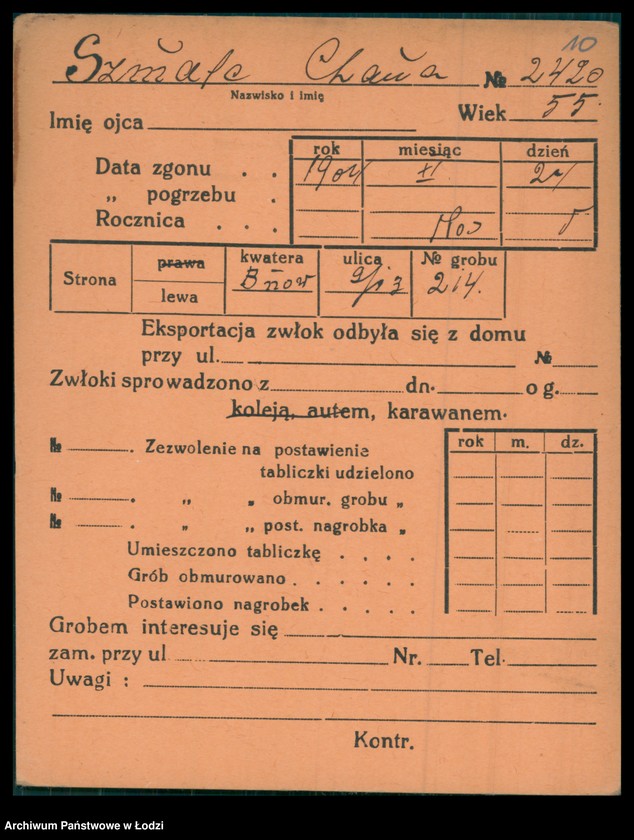 10
Szmulc Chaua № 2420
Nazwisko i imię
Wiek 55
Imię ojca
rok miesiąc dzień
Data zgonu . . 1904 XI
„ pogrzebu .
Rocznica . . .
Strona prawa lewa kwatera ulica № grobu
214.
Eksportacja zwłok odbyła się z domu
przy ul. №
Zwłoki sprowadzono z dn. o g.
koleją, autem, karawanem.
№ . Zezwolenie na postawienie
tabliczki udzielono
rok m. dz.
№ . „ „ obmur. grobu „
№ . „ „ post. nagrobka „
Umieszczono tabliczkę . . . .
Grób obmurowano . . . . .
Postawiono nagrobek . . . .
Grobem interesuje się
zam. przy ul Nr. Tel.
Uwagi :
Kontr.
Archiwum Państwowe w Łodzi